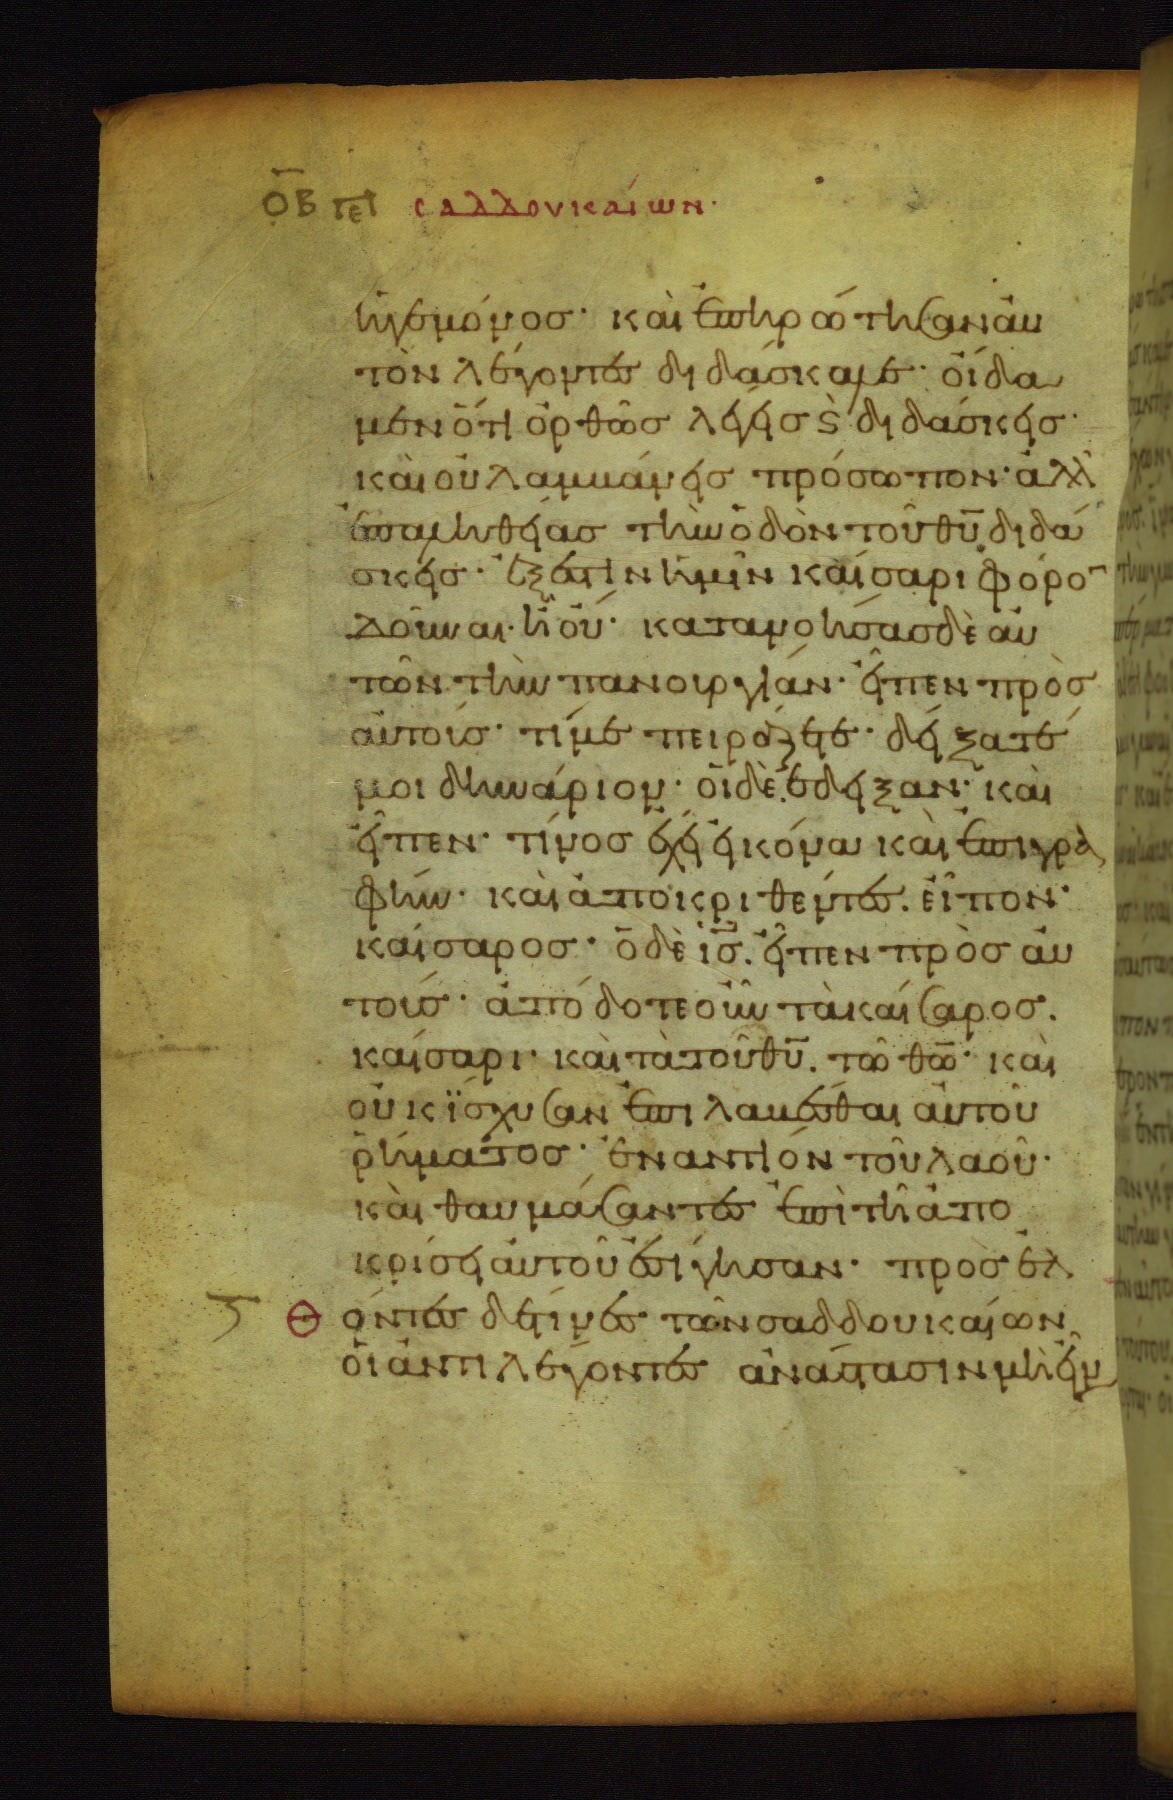 ΟΒ πε σαδδουκαίων·
ἡγεμόνος· καὶ ἐπηρώτησαν αὐ
τὸν λέγοντες διδάσκαλε· οἴδα
μεν ὅτι ὀρθῶς λέγεις ϗ διδάσκεις·
καὶ οὐ λαμβάνεις πρόσωπον· ἀλλ'
ἐπ' ἀληθείας τὴν ὁδὸν τοῦ θυ διδά
σκεις· ἔξεστιν ἡμῖν καίσαρι φόρο
δοῦναι· ἢ οὔ· κατανοήσας δὲ αὐ
τῶν τὴν πανουργίαν· εἶπεν πρὸς
αὐτούς· τί με πειράζετε· δείξατέ
μοι δηνάριον· οἱ δὲ ἔδειξαν· καὶ
εἶπεν· τίνος ἔχει εἰκόνα καὶ ἐπιγρα
φήν· καὶ ἀποκριθέντες· εἶπον·
καίσαρος· ὁ δὲ ις· εἶπεν πρὸς αὐ
τούς· ἀπόδοτε οὖν τὰ καίσαρος·
καίσαρι· καὶ τὰ τοῦ θυ· τῶ θω· καὶ
οὐκ ἴσχυσαν ἐπιλαβέσθαι αὐτοῦ
ῥήματος· ἐναντίον τοῦ λαοῦ·
καὶ θαυμάσαντες ἐπὶ τῆ ἀπο
κρίσει αὐτοῦ ἐσίγησαν· προσελ
θόντες δέ τινες τῶν σαδδουκαίων
οἱ ἀντιλέγοντες ἀνάστασιν μὴ εἶν